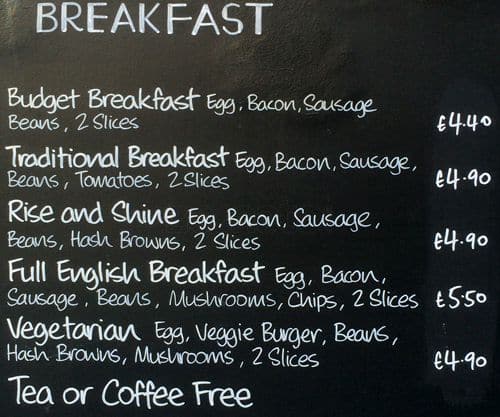 BREAKFAST
Budget Breakfast Egg, Bacon, Sausage
Beans, 2 Slices £4.40
Traditional Breakfast Egg, Bacon, Sausage,
Beans, Tomatoes, 2 Slices £4.90
Rise and Shine Egg, Bacon, Sausage,
Beans, Hash Browns, 2 Slices £4.90
Full English Breakfast Egg, Bacon,
Sausage, Beans, Mushrooms, Chips, 2 Slices £5.50
Vegetarian Egg, Veggie Burger, Beans,
Hash Browns, Mushrooms, 2 Slices £4.90
Tea or Coffee Free